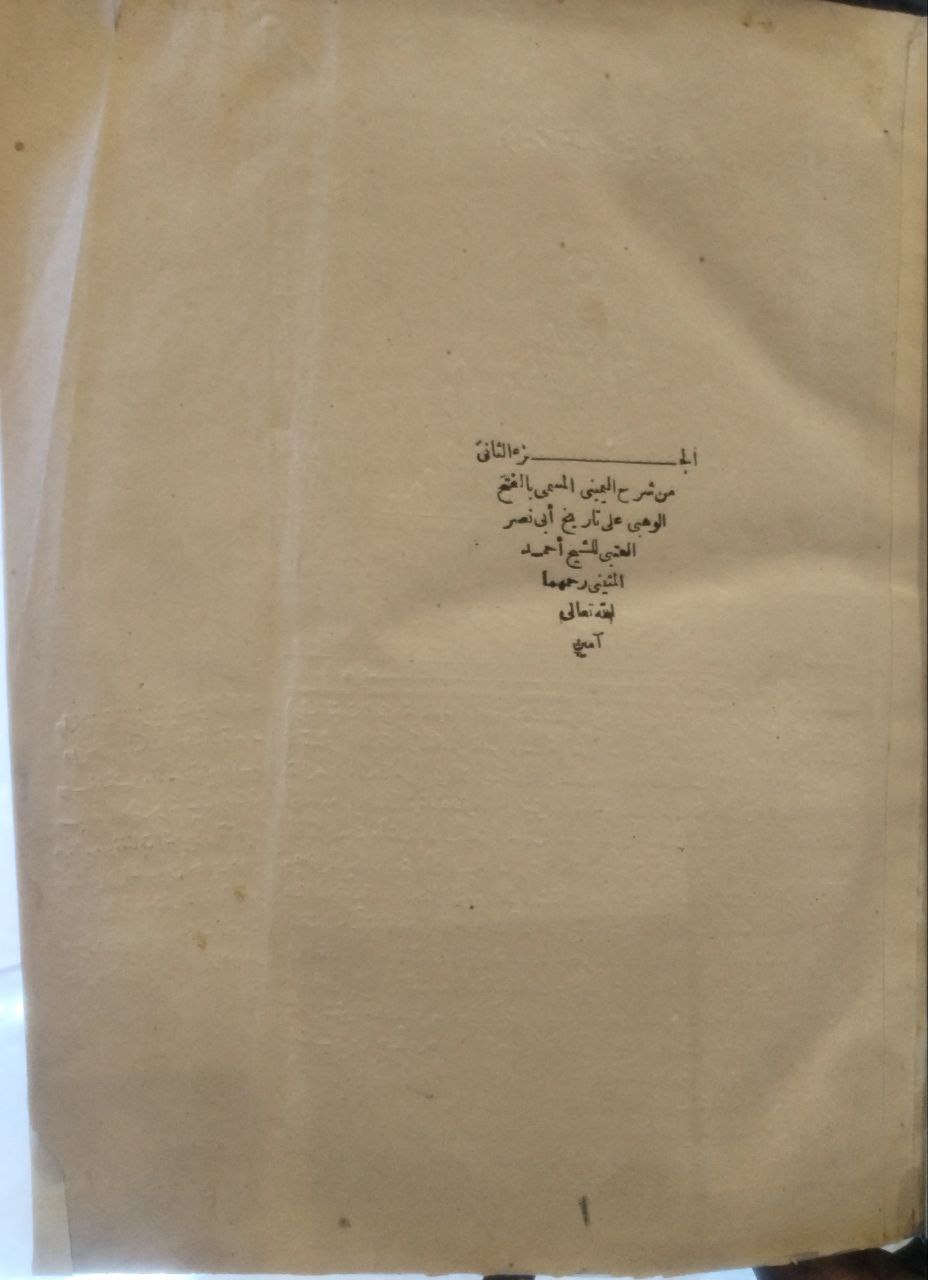 الجـــــــــــزء الثانى
من شرح اليمينى المسمى بالفتح
الوهبى على تاريخ أبى نصر
العتبى للشيخ أحمـد
المنينى رحمهما
الله تعالى
آمين